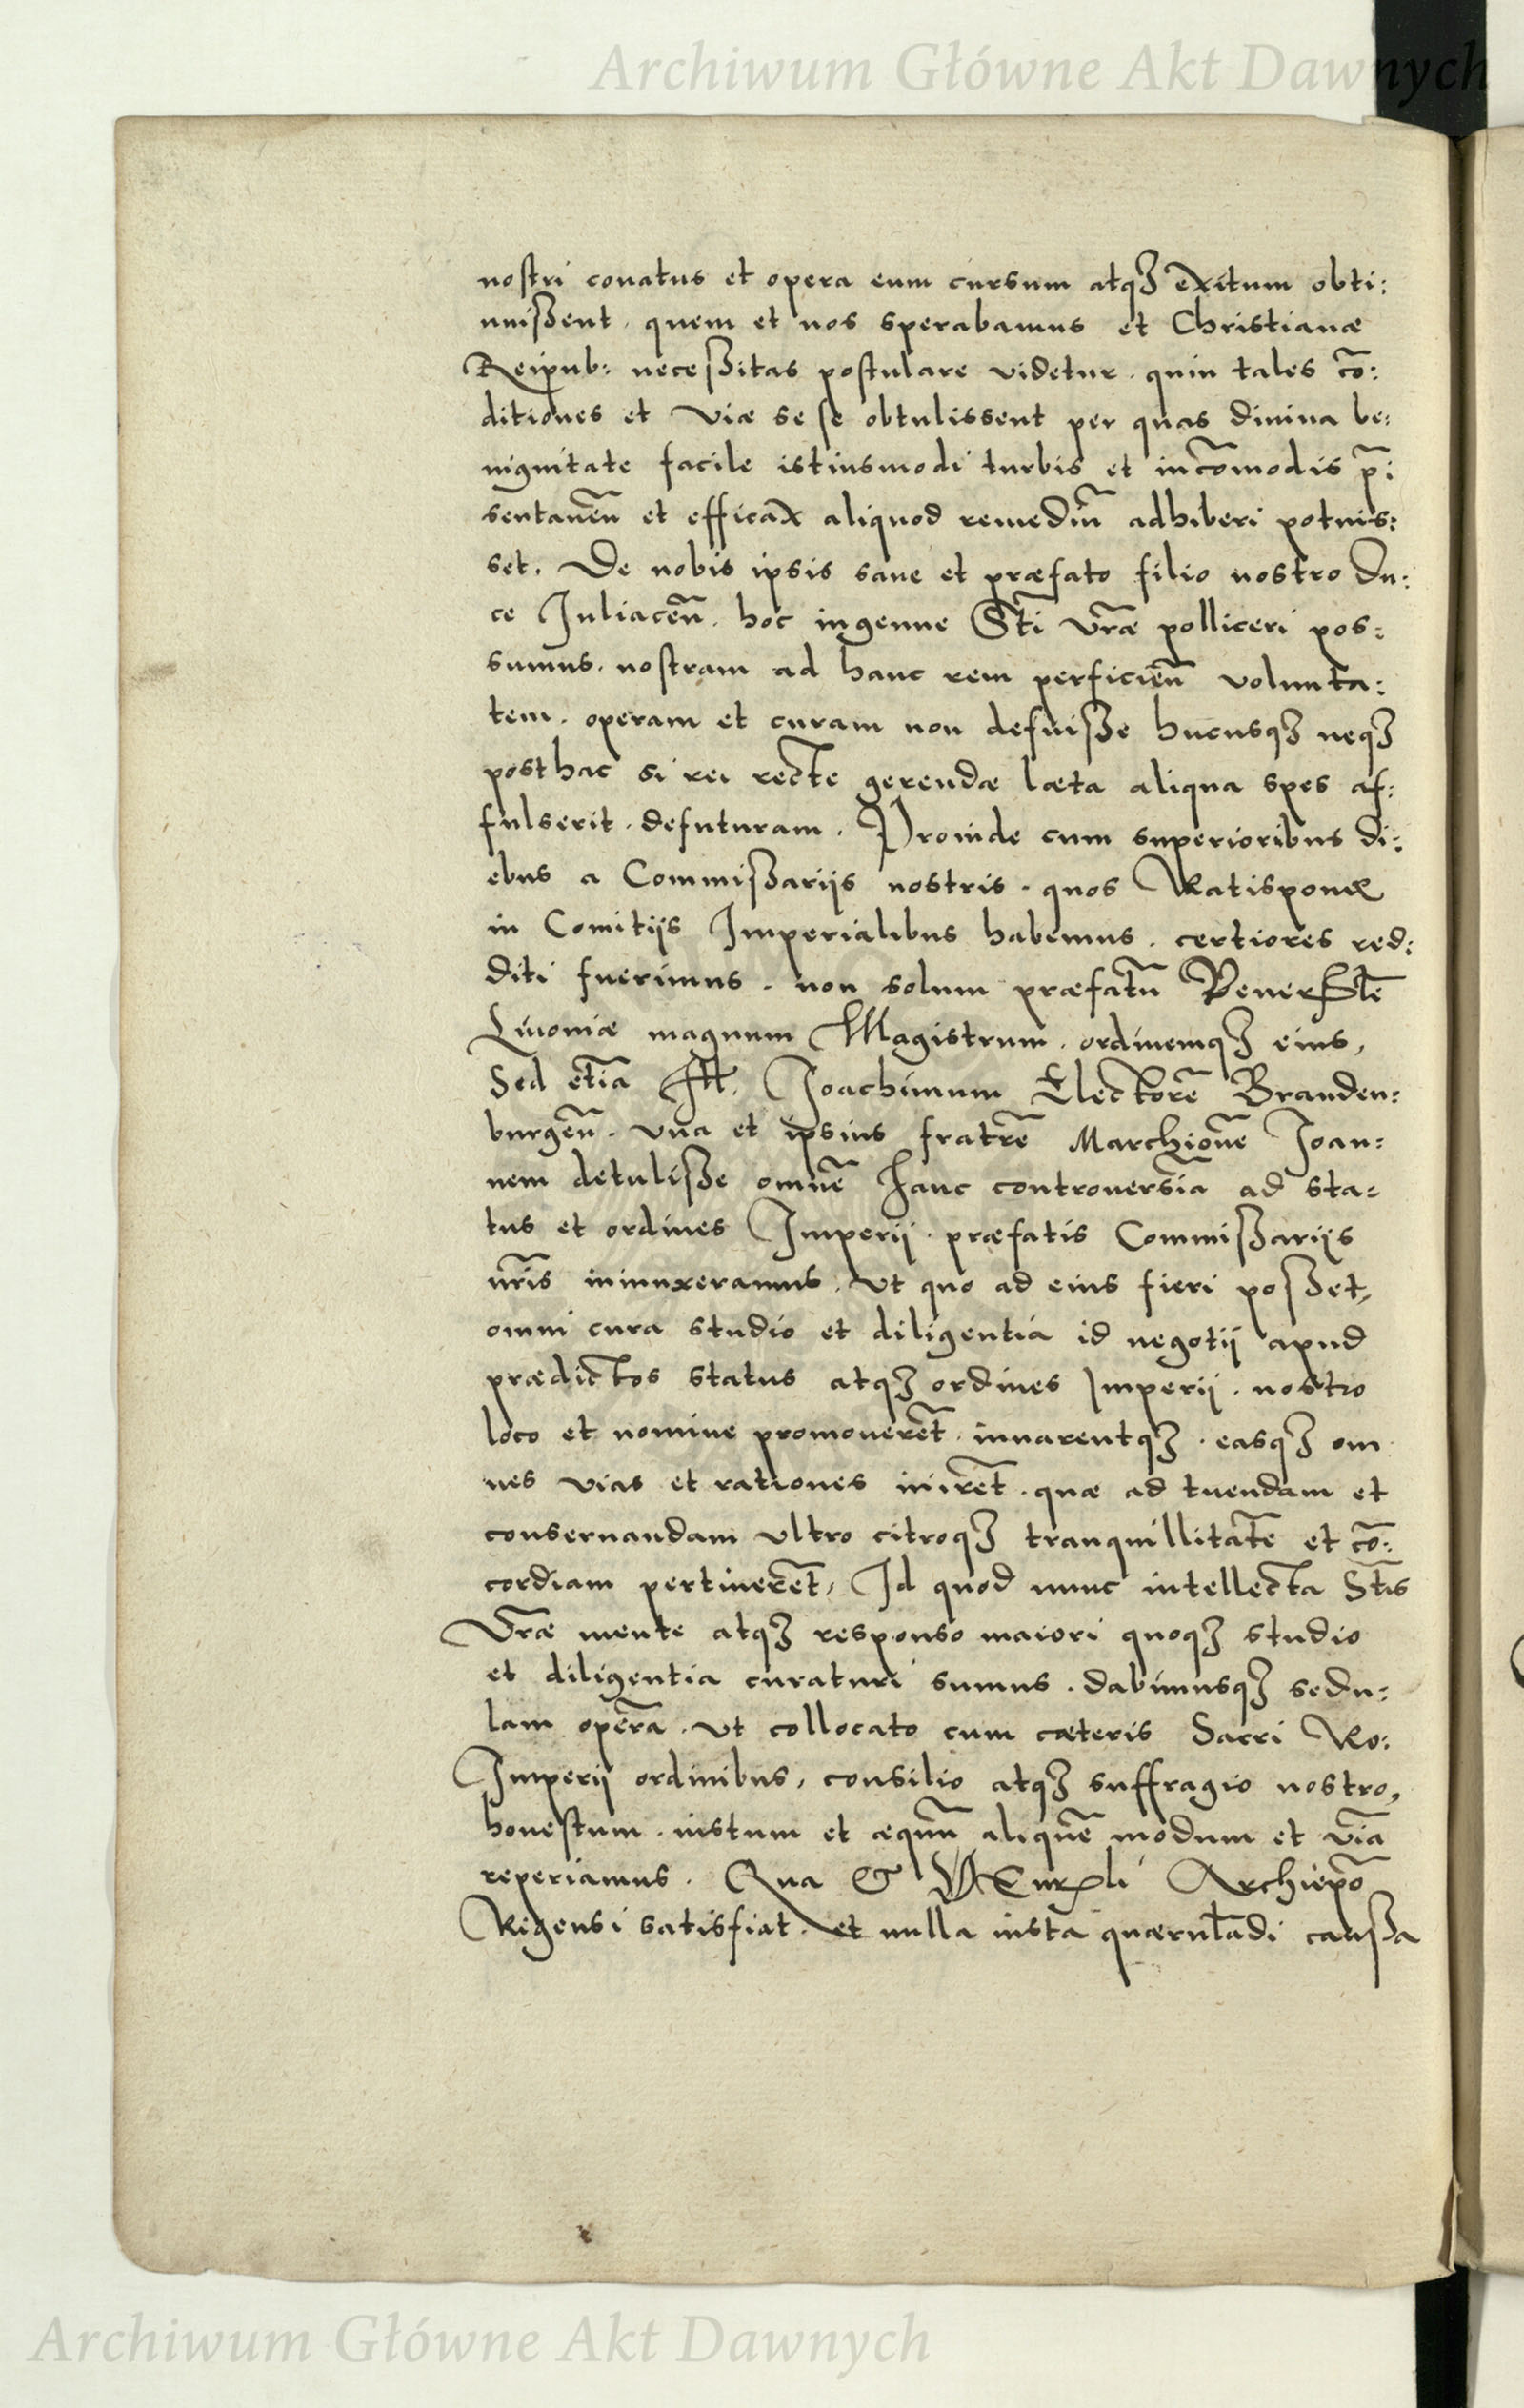 Archiwum Główne Akt Dawnych
nostri conatus et opera eum cursum atqȝ exitum obti:
nuißent. quem et nos sperabamus et Christianæ
Reipub: neceßitas postulare videtur. quin tales cō:
ditiones et viæ se se obtulissent per quas diuina be:
nignitate facile istiusmodi turbis et incōmodis p̄:
sentaneū et efficax aliquod remediū adhiberi potuis:
set. De nobis ipsis sane et præfato filio nostro Du:
ce Iuliaceñ. hoc ingenue Sti vr̄æ polliceri pos:
sumus. nostram ad hanc rem perficieñ volunta:
tem. operam et curam non defuiße hucusqȝ neqȝ
posthac si rei recte gerendæ læta aliqua spes af:
fulserit. defuturam. Proinde cum superioribus di:
ebus a Commißarijs nostris. quos Ratisponæ
in Comitijs Imperialibus habemus. certiores red:
diti fuerimus. non solum præfatū
Liuoniæ magnum Magistrum. ordinemqȝ eius,
Sed etiā Ill. Ioachimum Electorē Branden:
burgeñ. vna et ipsius fratrē Marchionē Ioan:
nem detuliße omnē hanc controuersiā ad sta:
tus et ordines Imperij. præfatis Commißarijs
nr̄is iniunxeramus. vt quo ad eius fieri poßet,
omni cura studio et diligentia id negotij apud
prædictos status atqȝ ordines Imperij. nostro
loco et nomine promouerēt. iuuarentqȝ. easqȝ om
nes vias et rationes inirēt. quæ ad tuendam et
conseruandam vltro citroqȝ tranquillitatē et cō:
cordiam pertinerēt, Id quod nunc intellecta Stis
Vr̄æ mente atqȝ responso maiori quoqȝ studio
et diligentia curaturi sumus. dabimusqȝ sedu:
lam operā. vt collocato cum cæteris Sacri Ro:
Imperij ordinibus, consilio atqȝ suffragio nostro,
honestum. iustum et æquū aliquē modum et viā
reperiamus. Qua & Archiep̄o
Rigensi satisfiat. et nulla iusta quærulādi caußa
Archiwum Główne Akt Dawnych